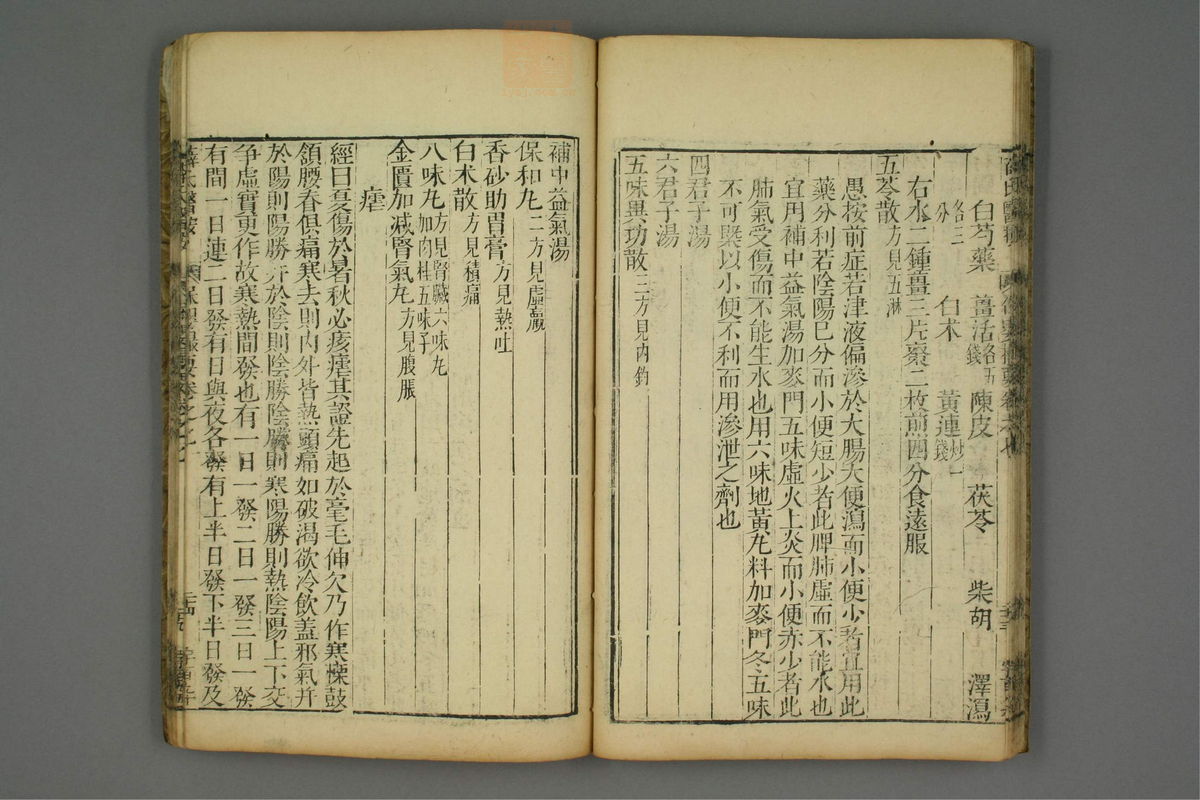 白芍藥 薑活各五錢 陳皮 茯苓 柴胡 澤瀉
各三分 白朮 黃連炒一錢
右水二鍾薑三片棗二枚煎四分食遠服
五苓散方見五淋
愚按前症若津液偏滲於大腸大便瀉而小便少者宜用此
藥分利若陰陽已分而小便短少者此脾肺虛而不能水也
宜用補中益氣湯加麥門五味虛火上炎而小便赤少者此
肺氣受傷而不能生水也用六味地黃丸料加麥門冬五味
不可槩以小便不利而用滲泄之劑也
四君子湯
六君子湯
五味異功散三方見內鈞
補中益氣湯
保和丸二方見虛羸
香砂助胃膏方見熱吐
白朮散方見積痛
八味丸方見腎臟六味丸加肉桂五味子
金匱加减腎氣丸方見腹脹
瘧
經曰夏傷於暑秋必痎瘧其證先起於毫毛伸欠乃作寒慄鼓
頷腰脊俱痛寒去則内外皆熱頭痛如破渴欲冷飲蓋邪氣并
於陽則陽勝并於陰則陰勝陰勝則寒陽勝則熱陰陽上下交
争虛實更作故寒熱間發也有一日一發二日一發三日一發
有間一日連二日發有日與夜各發有上半日發下半日發及